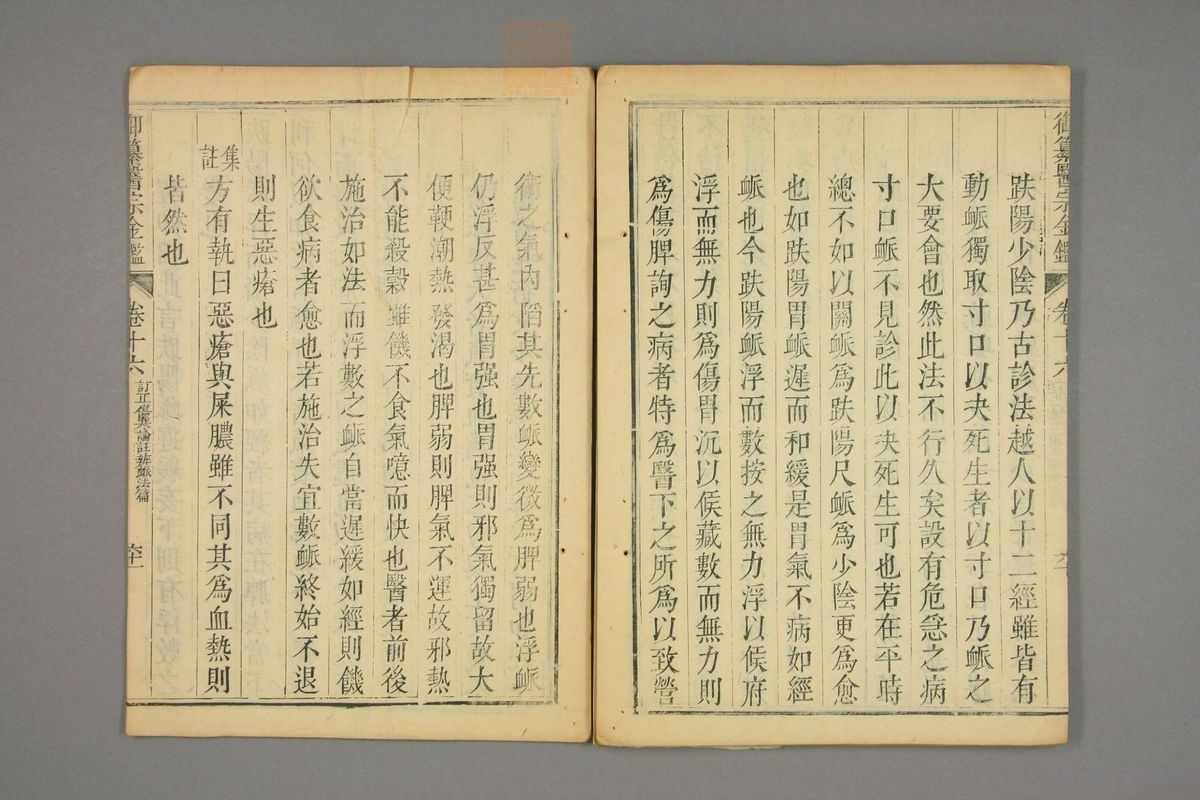 御纂醫宗金鑑 卷十六
趺陽少陰乃古診法越人以十二經雖皆有
動䘑獨取寸口以决死生者以寸口乃䘑之
大要會也然此法不行久矣設有危急之病
寸口䘑不見診此以决死生可也若在平時
總不如以關䘑爲趺陽尺䘑爲少陰更爲愈
也如趺陽胃䘑遲而和緩是胃氣不病如經
䘑也今趺陽䘑浮而數按之無力浮以候府
浮而無力則爲傷胃沉以候藏數而無力則
爲傷脾詢之病者特爲醫下之所爲以致營
衞之氣內陷其先數䘑變微爲脾弱也浮䘑
仍浮反甚爲胃强也胃强則邪氣獨留故大
便鞕潮熱發渴也脾弱則脾氣不運故邪熱
不能殺穀雖饑不食氣噫而快也醫者前後
施治如法而浮數之䘑自當遲緩如經則饑
欲食病者愈也若施治失宜數䘑終始不退
則生惡瘡也
集註 方有執曰惡瘡與屎膿雖不同其爲血熱則
皆然也
御纂醫宗金鑑 卷十六 訂正傷寒論註辨䘑法篇 六十一